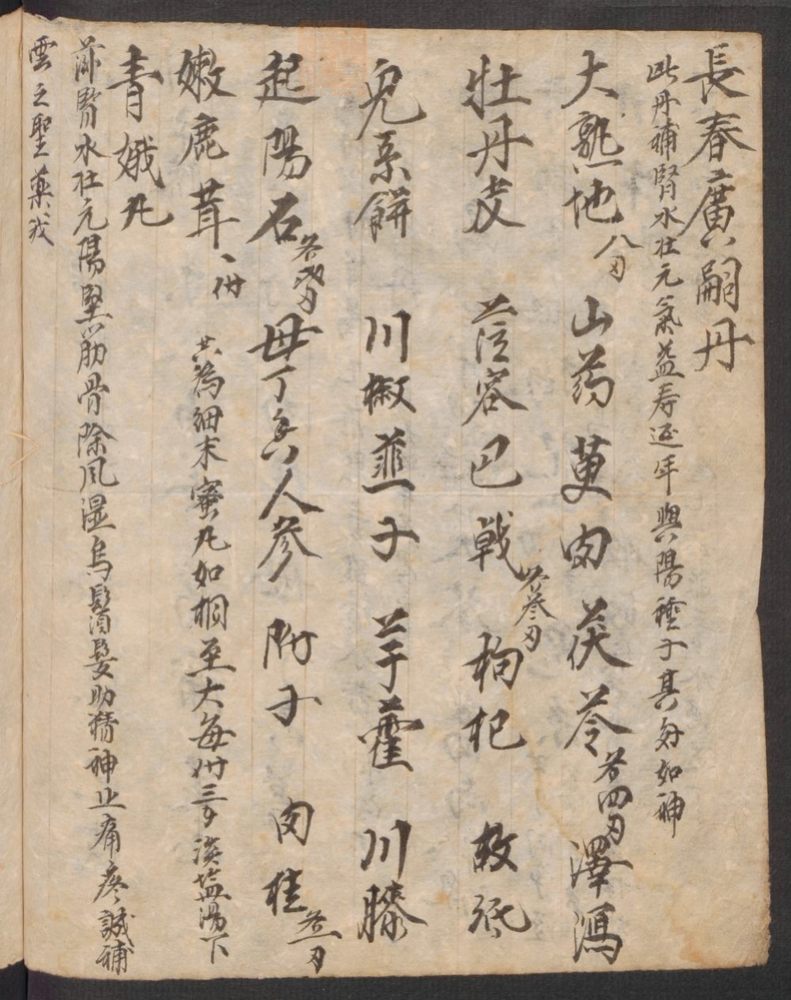 長春廣嗣丹
此丹補腎水壯元氣益壽延年興陽種子其効如神
大熟地 八刃 山药 萸肉 茯苓 各四刃 澤瀉
牡丹皮 蓯容 巴戟 各叁刃 枸杞 故紙
兎糸餅 川椒 韮子 羊藿 川膝
起陽石 各刃 母丁香 人參 附子 肉桂 各一刃
嫩鹿茸 一付 共為細末蜜丸如桐至大每付三子淡盐湯下
青娥丸
滋腎水壯元陽堅筋骨除風濕烏鬚髮助精神止痛疼誠補
雲之聖藥哉